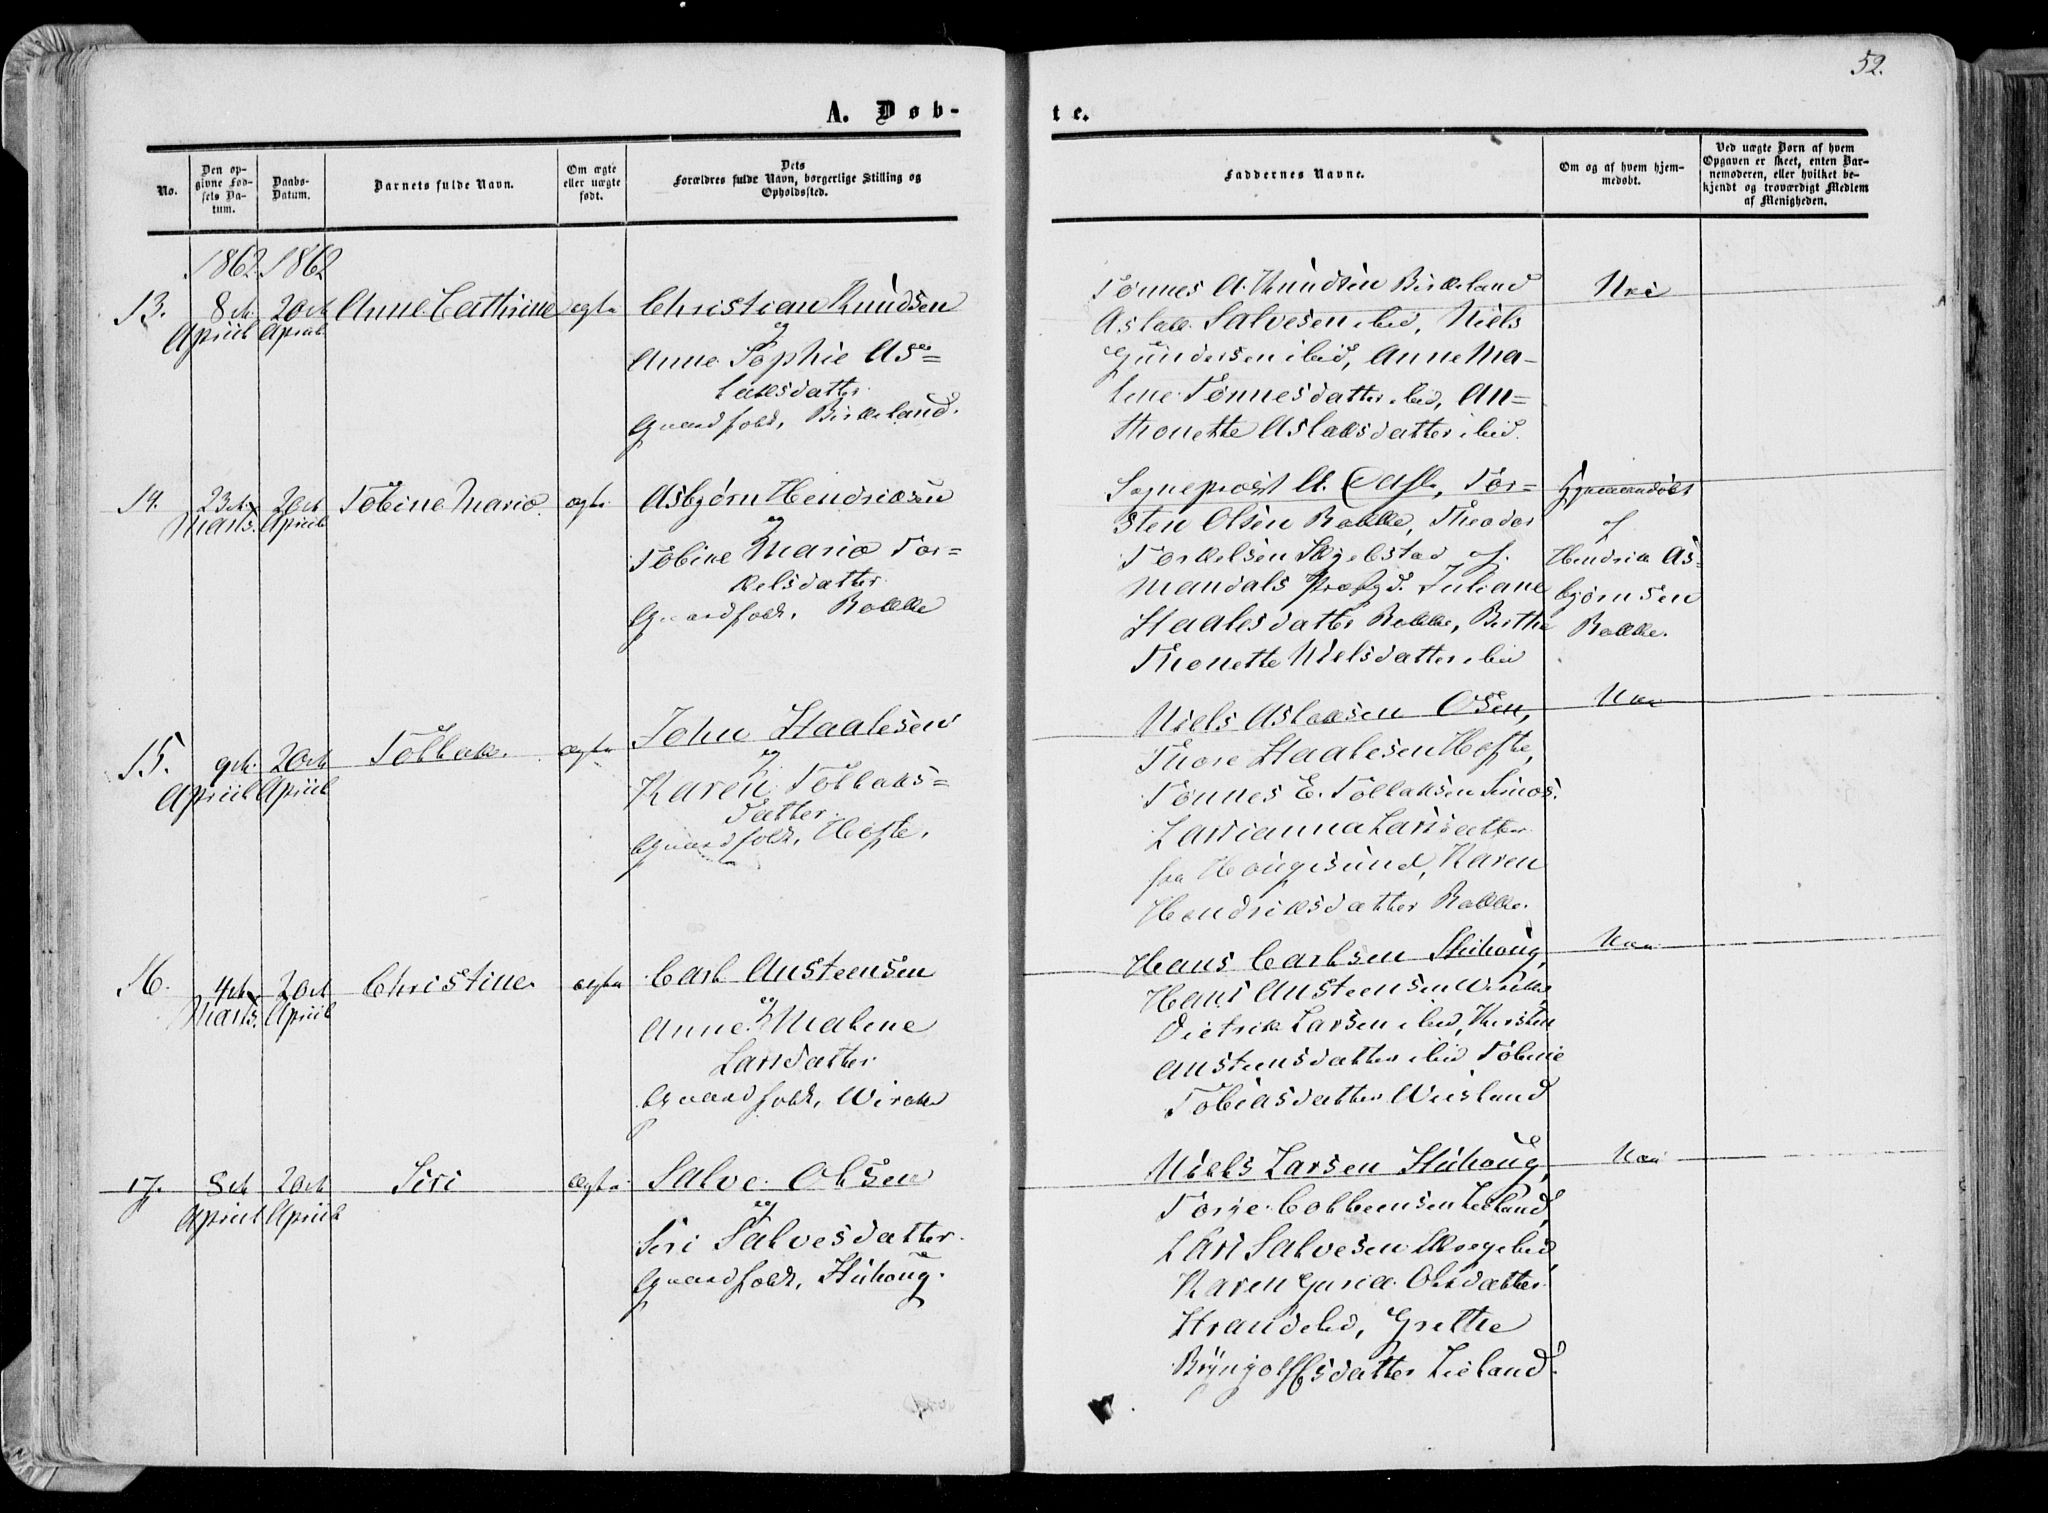 52.
A. Døb-
te.
No.
Den op-
givne Fød-
sels Da-
tum.
Daabs-
Datum.
Barnets fulde Navn.
Om ægte
eller uægte
født.
Dets
Forældres fulde Navn, borgerlige Stilling og
Opholdssted.
Faddernes Navne.
Om og af hvem hjem-
medøbt.
Ved uægte Børn af hvem
Opgaven er skeet, enten Bar-
nemoderen, eller hvilket be-
kjendt og troværdigt Medlem
af Menigheden.
1862 1862
13. 8de 20de Anne Cathrine ægte Christian Knudsen
April April og
Anne Sophie As=
laksdatter
Gaardfolk, Birkeland.
Tønnes A. Knudsen Birkeland
Aslak Salvesen ibid, Niels
Gundersen ibid, Anne Ma-
lene Tønnesdatter ibid, An=
thonette Aslaksdatter ibid.
Nei
14. 23de 20de Tobine Maria ægte Asbjørn Hendriksen
Marts. April og
Tobine Maria Tor=
kelsdatter
Gaardfolk, Bakke
Sogneprost A. Tor=
sten Olsen Bakke, Theodor
Torkelsen Skjelstad af
Mandals Præstgd. Juliane
Staalesdatter Bakke, Berthe
Thonette Nielsdatter ibid
Hjemmedøbt
af
Hendrik As=
bjørnsen
Bakke.
15. 9de 20de Tollak. ægte John Staalesen
April April og
Karen Tollaks=
datter
Gaardfolk, Høfte.
Niels Aslaksen Osen,
Thore Staalesen Høfte,
Tønnes E. Tollaksen Simos.
Larrianna Larsdatter
fra Hougesund, Karen
Hendriksdatter Bakke.
Nei
16. 4de 20de Christine ægte Carl Austeensen
Marts. April og
Anne Malene
Larsdatter
Gaardfolk, Wirak
Hans Carlsen Stuhoug,
Hans Austeensen Wirak,
Dietrik Larsen ibid, Kirsten
Austeensdatter ibid Tobine
Tobiasdatter Wiisland
Nei
17. 8de 20de Siri ægte Salve Olsen
April April og
Siri Salvesdatter
Gaardfolk, Stuhoug.
Niels Larsen Stuhoug,
Torje Colbeensen Lieland,
Lars Salvesen Skoge ibid,
Karen Guria Olsdatter
Strandebid, Grethe
Bryngolfsdatter Lieland.
Nei